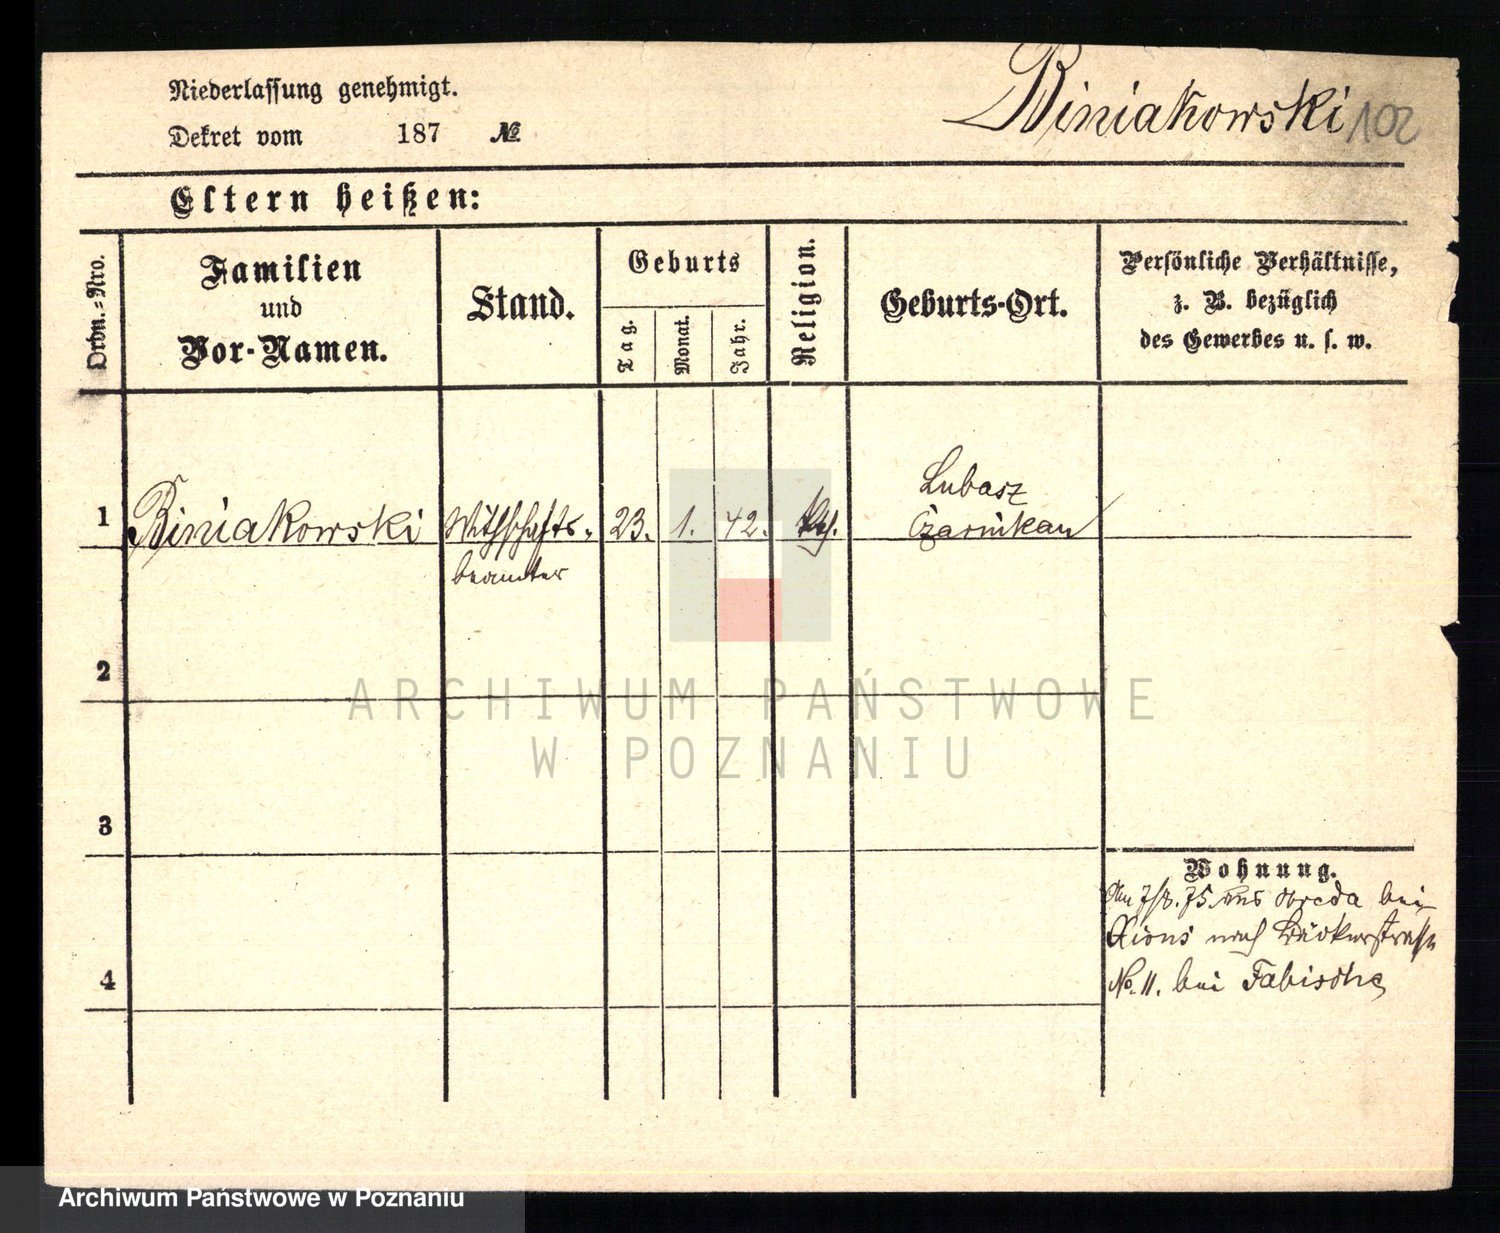 Niederlassung genehmigt.
Dekret vom 187 №
Biniakowski 102
Eltern heißen:
Ordn.-Nro.
Familien
und
Vor-Namen.
Stand.
Geburts
Tag.
Monat.
Jahr.
Religion.
Geburts-Ort.
Persönliche Verhältnisse,
z. B. bezüglich
des Gewerbes u. s. w.
Lubasz
1 Biniakowski Withschafts- 23. 1. 42. kth. Czarnikau
beamter
2
3
4
Wohnung.
75 aus bei
Xions nach
No. 11. bei Fabische
ARCHIWUM PAŃSTWOWE
W POZNANIU
Archiwum Państwowe w Poznaniu